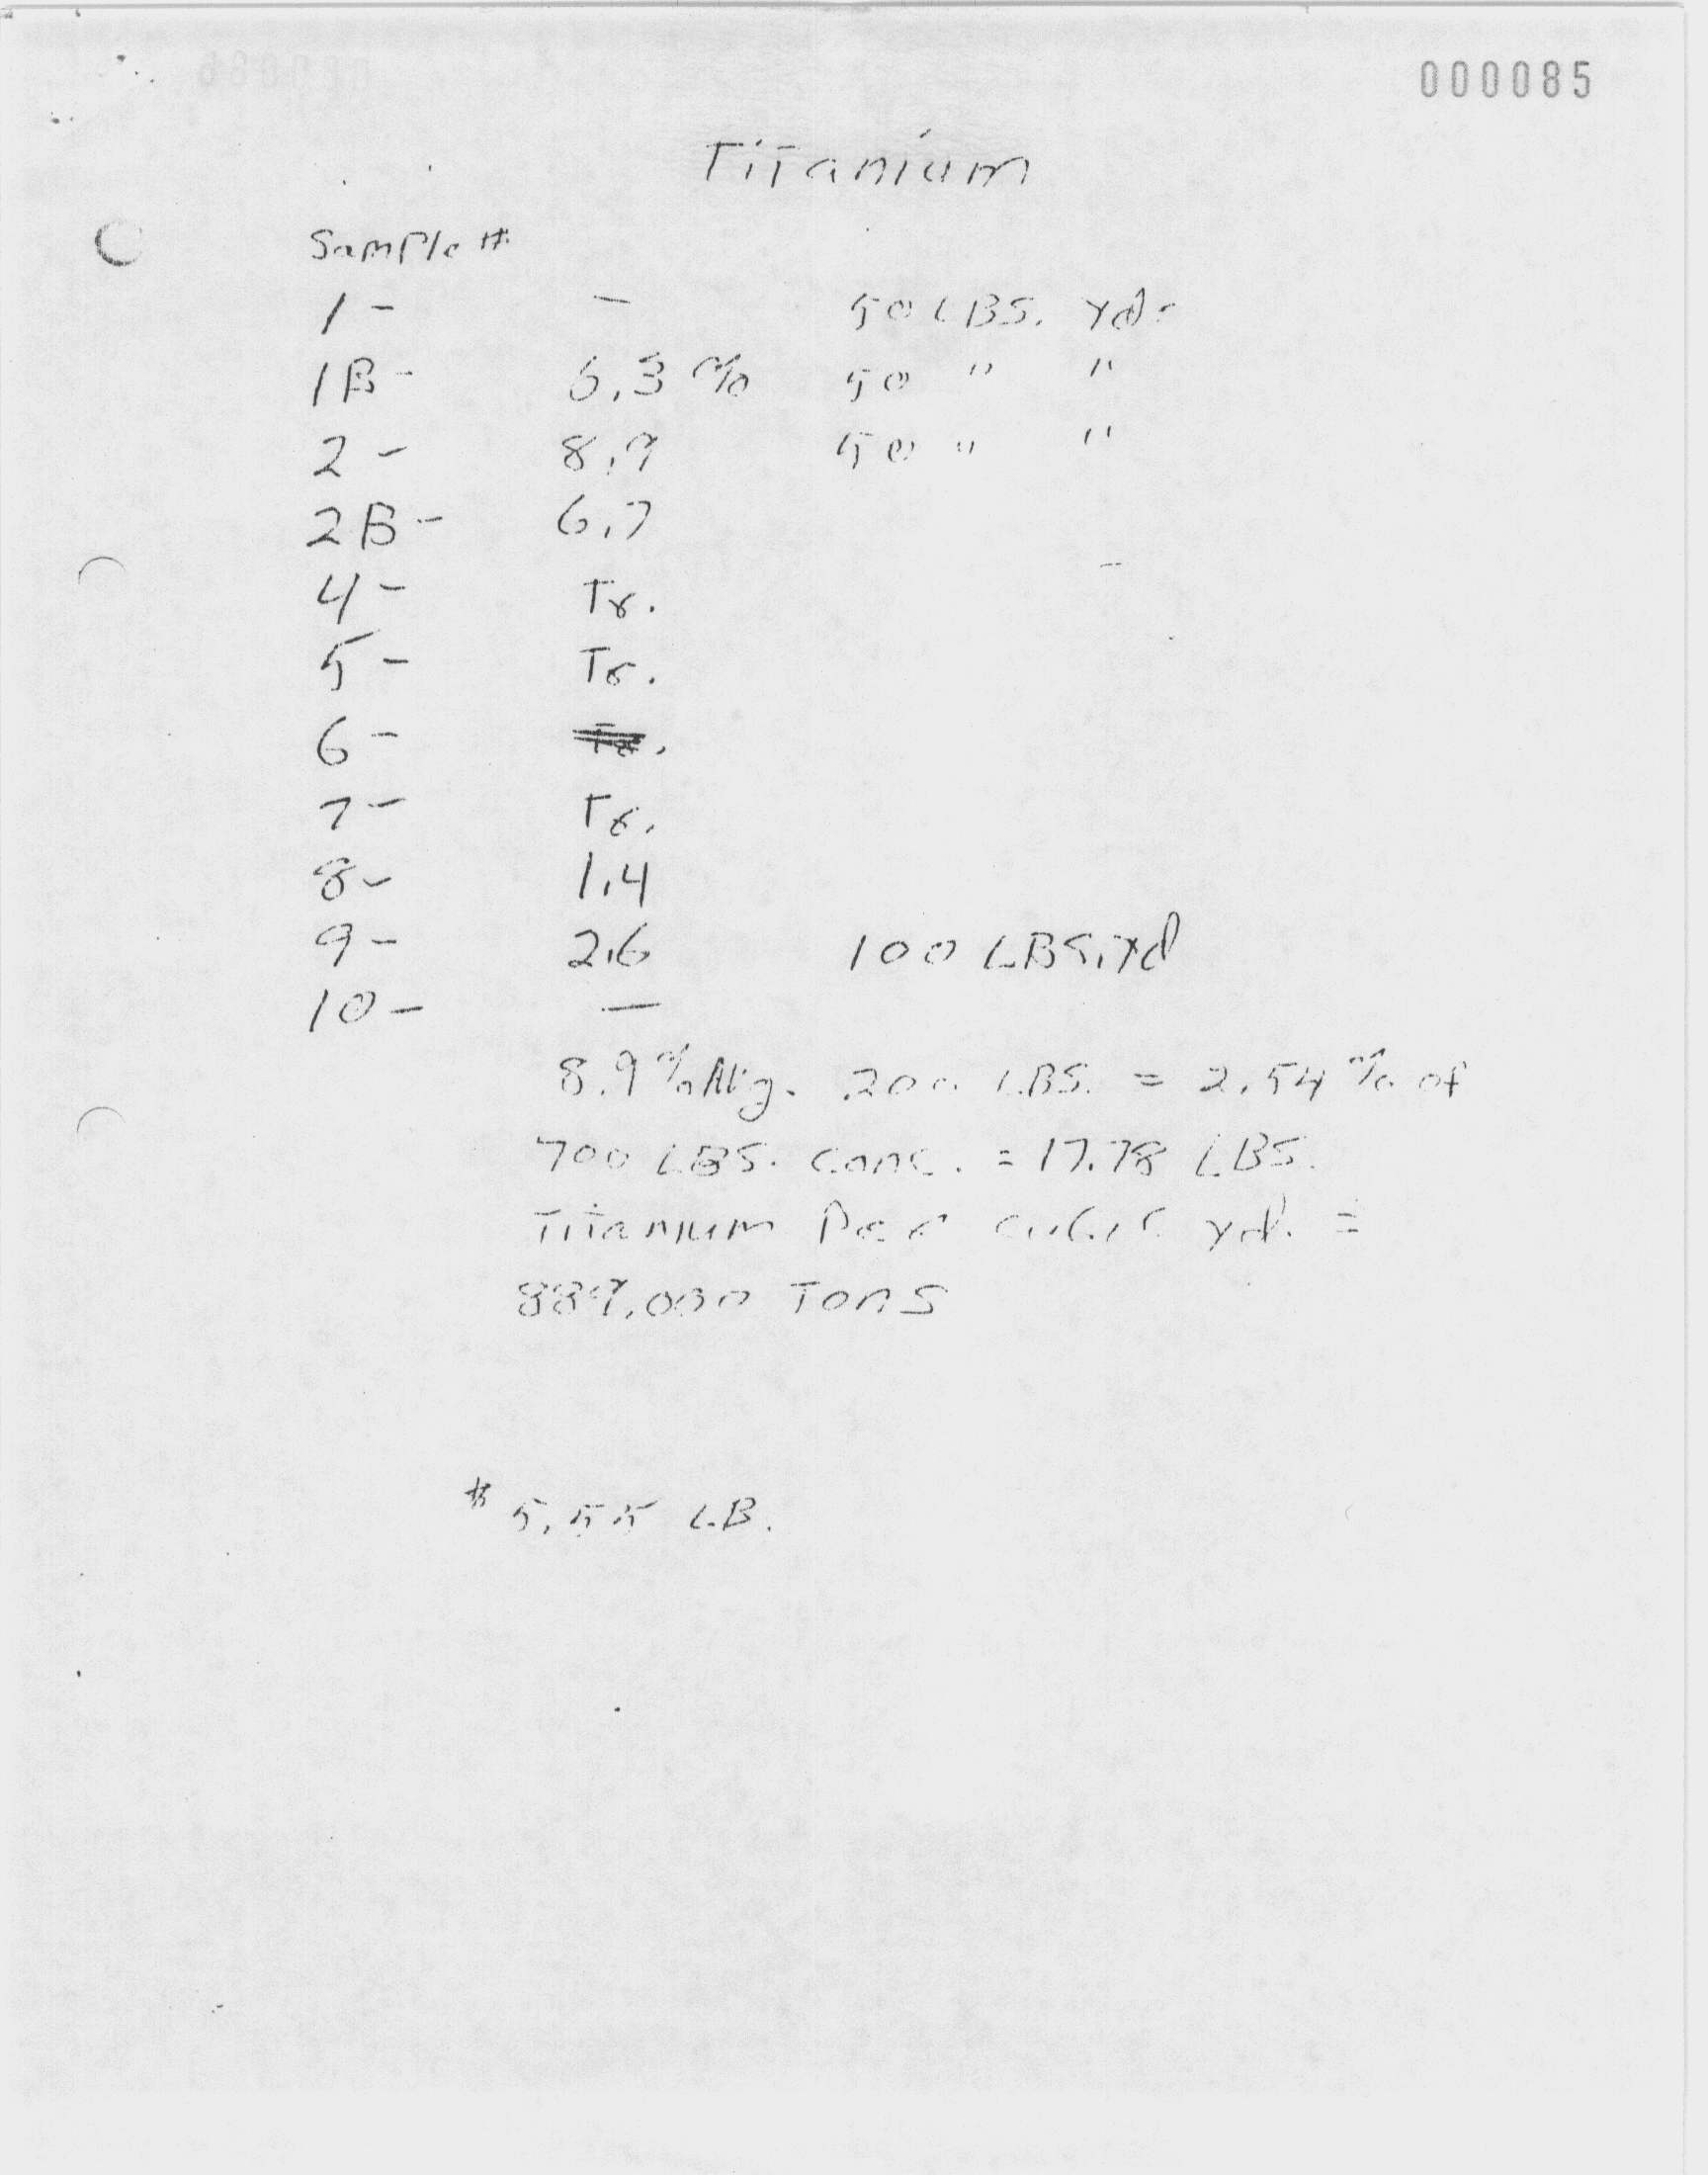 000085
Titanium
Sample #
1 - — 50 LBS. Yd.
1B - 6.3 % 50 " "
2 - 8.9 50 " "
2B - 6.7
4 - Tr.
5 - Tr.
6 - Tr.
7 - Tr.
8 - 1.4
9 - 2.6 100 LBS. Yd
10 - —
8.9 % Avg. 200 LBS. = 2.54 % of
700 LBS. conc. = 17.78 LBS.
Titanium Per cubic yd. =
889,000 Tons
$ 5.55 LB.